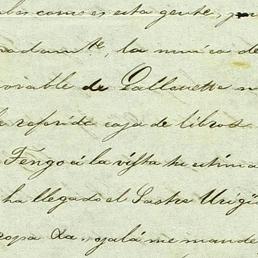 como es esta gente, pu
adamte, la musica de
orable de Pallavette n
la referida caja de libros
Tengo á la vista tu estima
ha llegado el Sastre Urigü
ropa &a, ojalá me mande